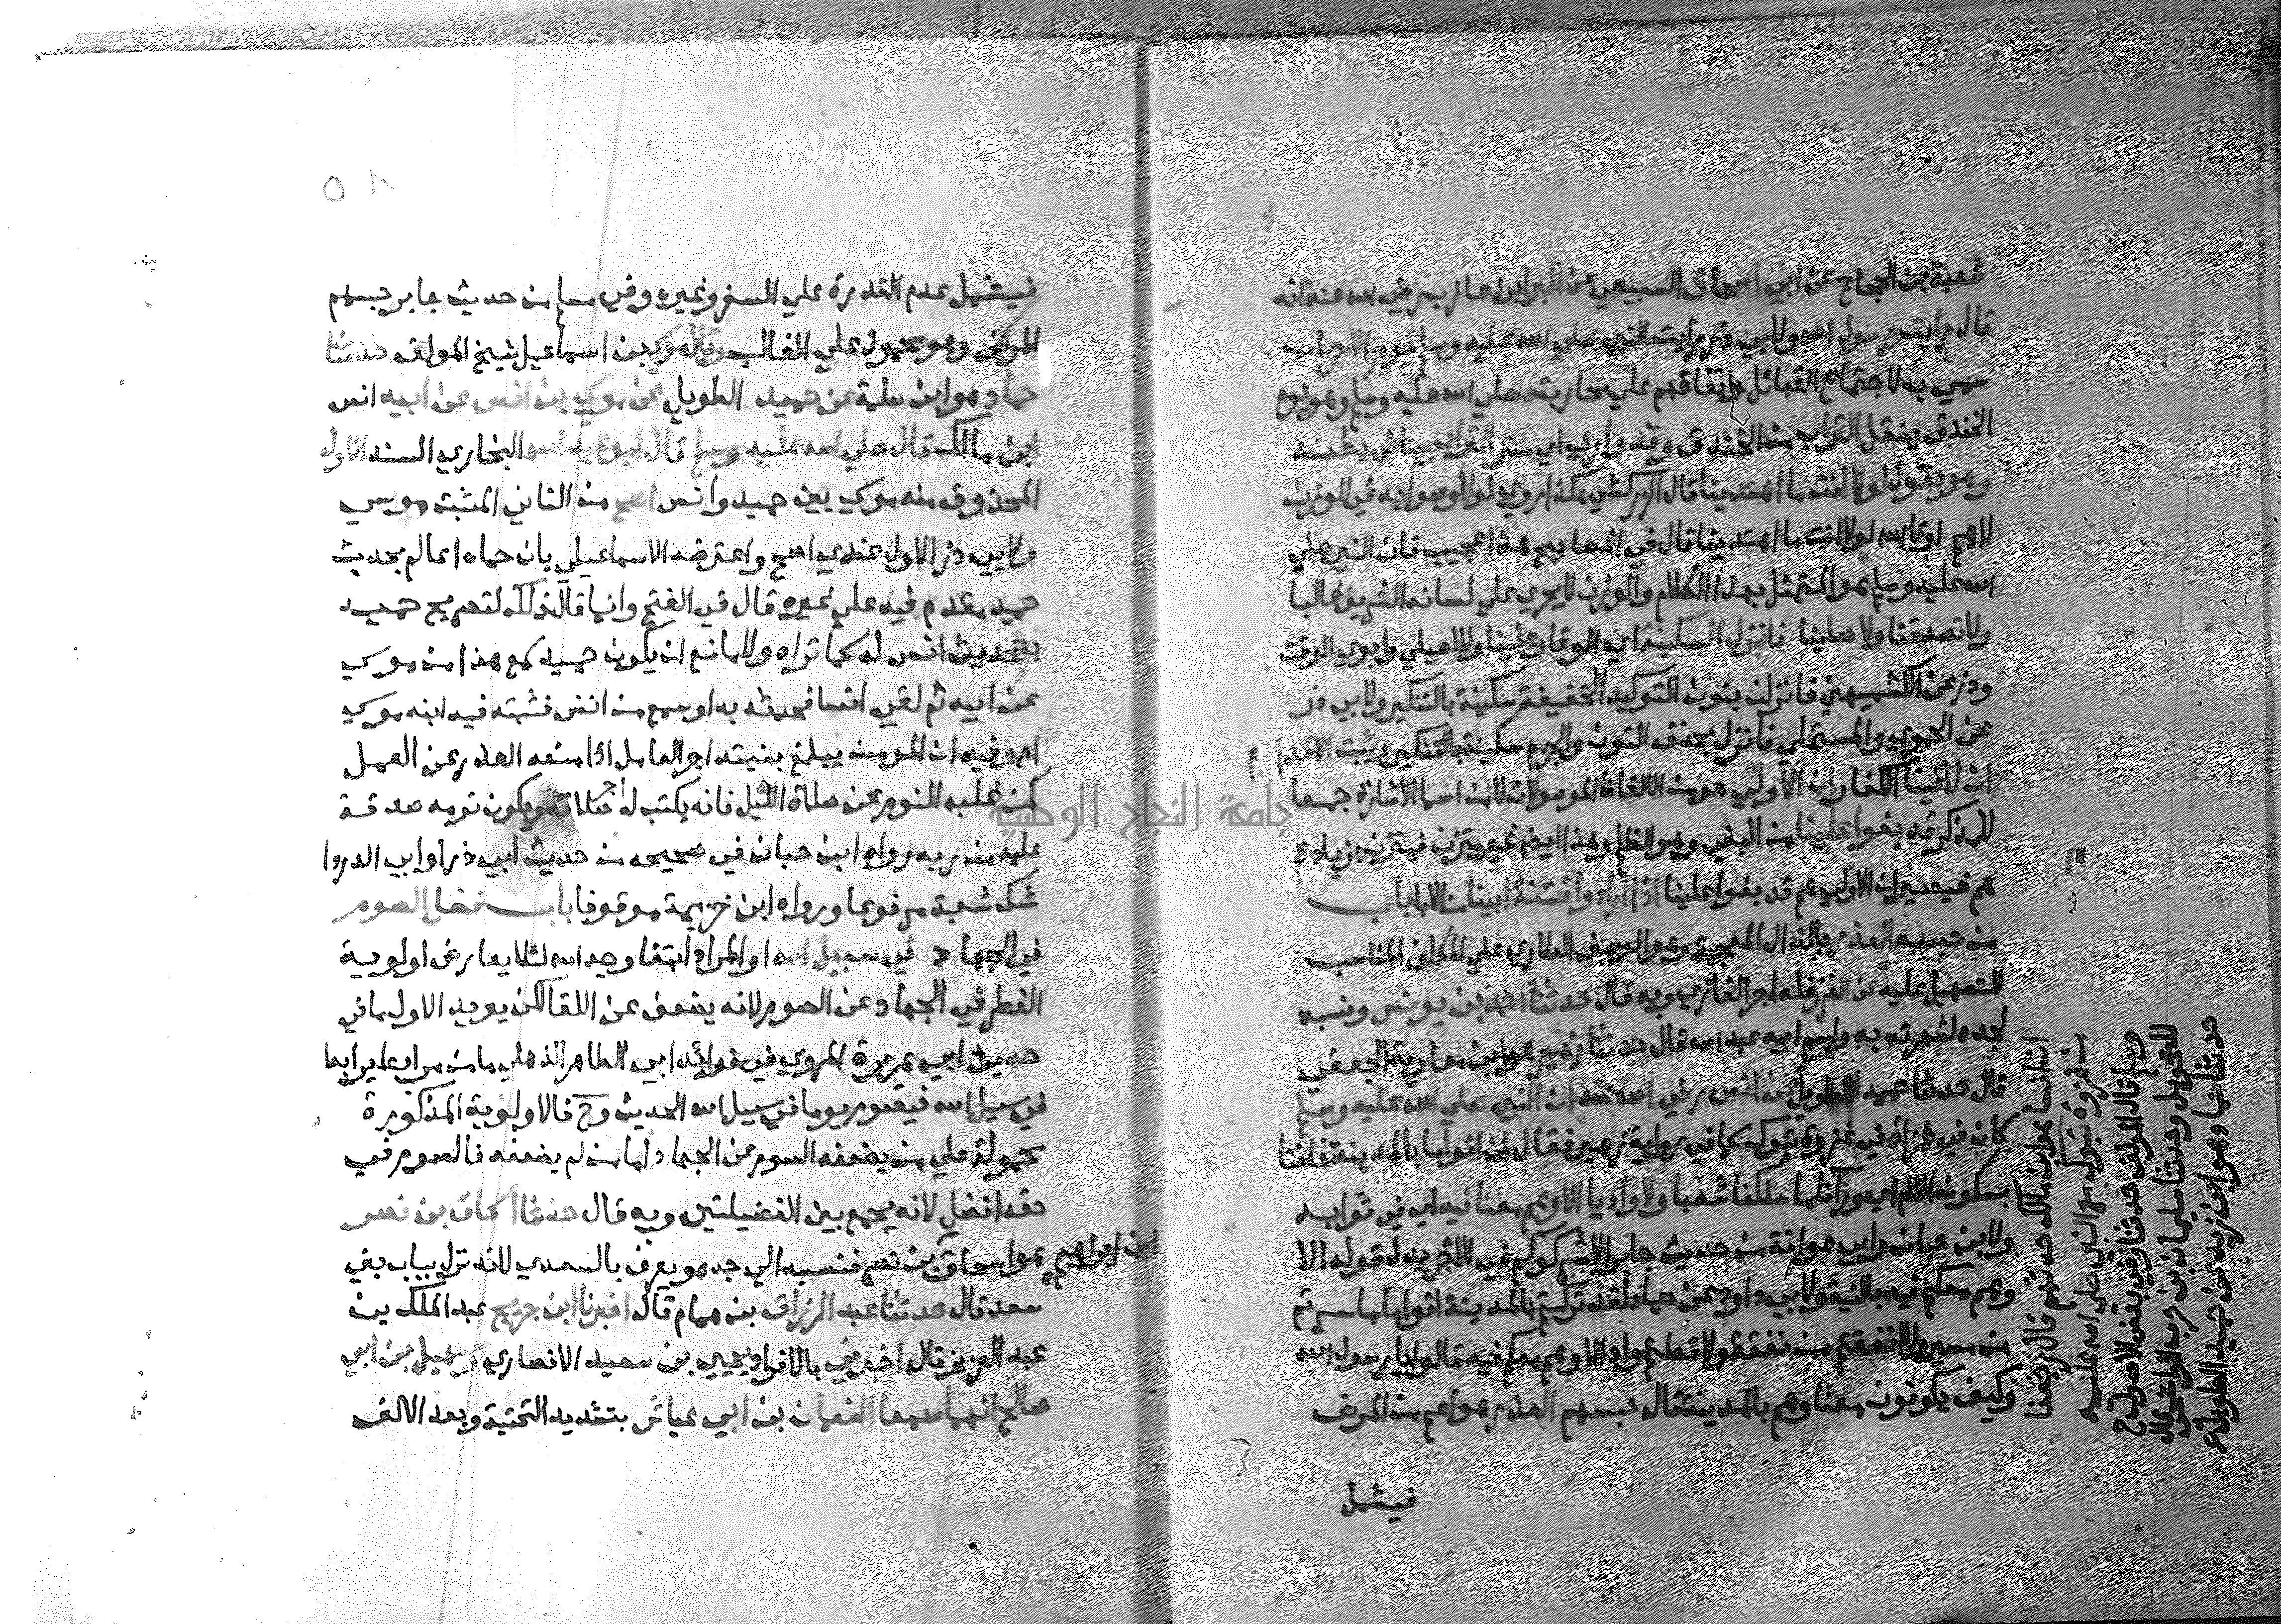 شعبة بن الحجاج عن ابي اسحاق السبيعي عن البرا بن عازب رضي الله عنه انه
قال رايت رسول الله ولابي ذر رايت النبي صلي الله عليه وسلم يوم الاحزاب
سمي به لاجتماع القبائل واتفاقهم علي محاربته صلي الله عليه وسلم وهو يوم
الخندق ينقل التراب من الخندق وقد واري اي ستر التراب بياض بطنه
وهو يقول لولا انت ما اهتدينا قال الزركشي هكذا روي لولا وصوابه في الوزن
لاهم او تالله لولا انت ما اهتدينا قال في المصابيح هذا عجيب فان النبي صلي
الله عليه وسلم هو المتمثل بهذا الكلام والوزن لا يجري علي لسانه الشريف غالبا
ولا تصدقنا ولا صلينا فانزل السكينة اي الوقار علينا وللاصيلي وابوي الوقت
وذر عن الكشميهني فانزلن بنون التوكيد الخفيفة سكينة بالتنكير ولابي ذر
عن الحموي والمستملي فانزل بحذف النون والجزم سكينة بالتنكير وثبت الاقدام
ان لاقينا الكفار ان الاولي هو من الالفاظ الموصولات لا من اسما الاشارة جمعا
للمذكر قد بغوا علينا من البغي وهو الظلم وهذا ايضا غير متزن فيتزن بزيادة
هم فيصير ان الاولي هم قد بغوا علينا اذا ارادوا فتنة ابينا من الابا باب
من حبسه العذر بالذال المعجمة وهو الوصف الطاري علي المكلف المناسب
للتسهيل عليه عن الغزو فله اجر الغازي وبه قال حدثنا احمد بن يونس ونسبه
لجده لشهرته به واسم ابيه عبد الله قال حدثنا زهير هو ابن معاوية الجعفي
قال حدثنا حميد الطويل عن انس رضي الله عنه ان النبي صلي الله عليه وسلم
كان في غزاة في غزوة تبوك كما في رواية زهير فقال ان اقواما بالمدينة خلفنا
بسكون اللام اي وراناما سلكنا شعبا ولا واديا الا وهم معنا فيه اي في ثوابه
ولابن حبان وابي عوانة من حديث جابر الا شركوكم في الاجر بدل قوله الا
وهم معكم فيه بالنية ولابي داود عن حماد لقد تركتم بالمدينة اقواما ما سرتم
من مسير ولا انفقتم من نفقة ولا قطعتم واديا الا وهم معكم فيه قالوا يا رسول الله
وكيف يكونون معنا وهم بالمدينة قال حبسهم العذر هو اعم من المرض
فيشمل
ان انسا هو ابن مالك حدثهم قال رجعنا
من غزوة تبوك مع النبي صلي الله عليه
وسلم قال المولف
للتحويل وحدثنا سليمان بن حرب الواشحي قال
حدثنا حماد هو ابن زيد عن حميد الطويل
٥٨
فيشمل عدم القدرة علي السفر وغيره وفي مسلم من حديث جابر حبسهم
المرض وهو محمول علي الغالب وقال موسي بن اسماعيل شيخ المولف حدثنا
حماد هو ابن سلمة عن حميد الطويل عن موسي بن انس عن ابيه انس
ابن مالك قال صلي الله عليه وسلم قال ابو عبد الله البخاري السند الاول
المحذوف منه موسي بين حميد وانس اصح من الثاني المثبت موسي
ولابي ذر الاول عندي اصح واعترضه الاسماعيلي بان حماد اعالم بحديث
حميد مقدم فيه علي غيره قال في الفتح وانما قال ذلك لتصريح حميد
بتحديث انس له كما تراه ولا مانع ان يكون حميد سمع هذا من موسي
عن ابيه ثم لقي انسا فحدثه به او سمع من انس فثبته فيه ابنه موسي
اه وفيه ان المومن يبلغ بنيته اجر العامل اذا منعه العذر عن العمل
كمن غلبه النوم عن صلاة الليل فانه يكتب له اجر صلاته ويكون نومه صدقة
عليه من ربه رواه ابن حبان في صحيحه من حديث ابي ذر او ابي الدردا
شك شعبة مرفوعا ورواه ابن خزيمة موقوفا باب فضل الصوم
في الجهاد في سبيل الله او المراد ابتغا وجه الله لئلا يعارض اولوية
الفطر في الجهاد عن الصوم لانه يضعف عن اللقا لكن يويد الاول ما في
حديث ابي هريرة المروي في فوائد ابي الطاهر الذهلي ما من مرابط يرابط
في سبيل الله فيصوم يوما في سبيل الله الحديث وح فالاولوية المذكورة
محمولة علي من يضعفه الصوم عن الجهاد اما من لم يضعفه فالصوم في
حقه افضل لانه يجمع بين الفضيلتين وبه قال حدثنا اسحاق بن نصر
هو اسحاق بن ابراهيم بن نصر فنسبه الي جده ويعرف بالسعدي لانه نزل بباب بني
سعد قال حدثنا عبد الرزاق بن همام قال اخبرنا ابن جريج عبد الملك بن
عبد العزيز قال اخبرني بالافراد يحيي بن سعيد الانصاري وسهيل بن ابي
صالح انهما سمعا النعمان بن ابي عياش بتشديد التحتية وبعد الالف
جامعة النجاح الوطنية